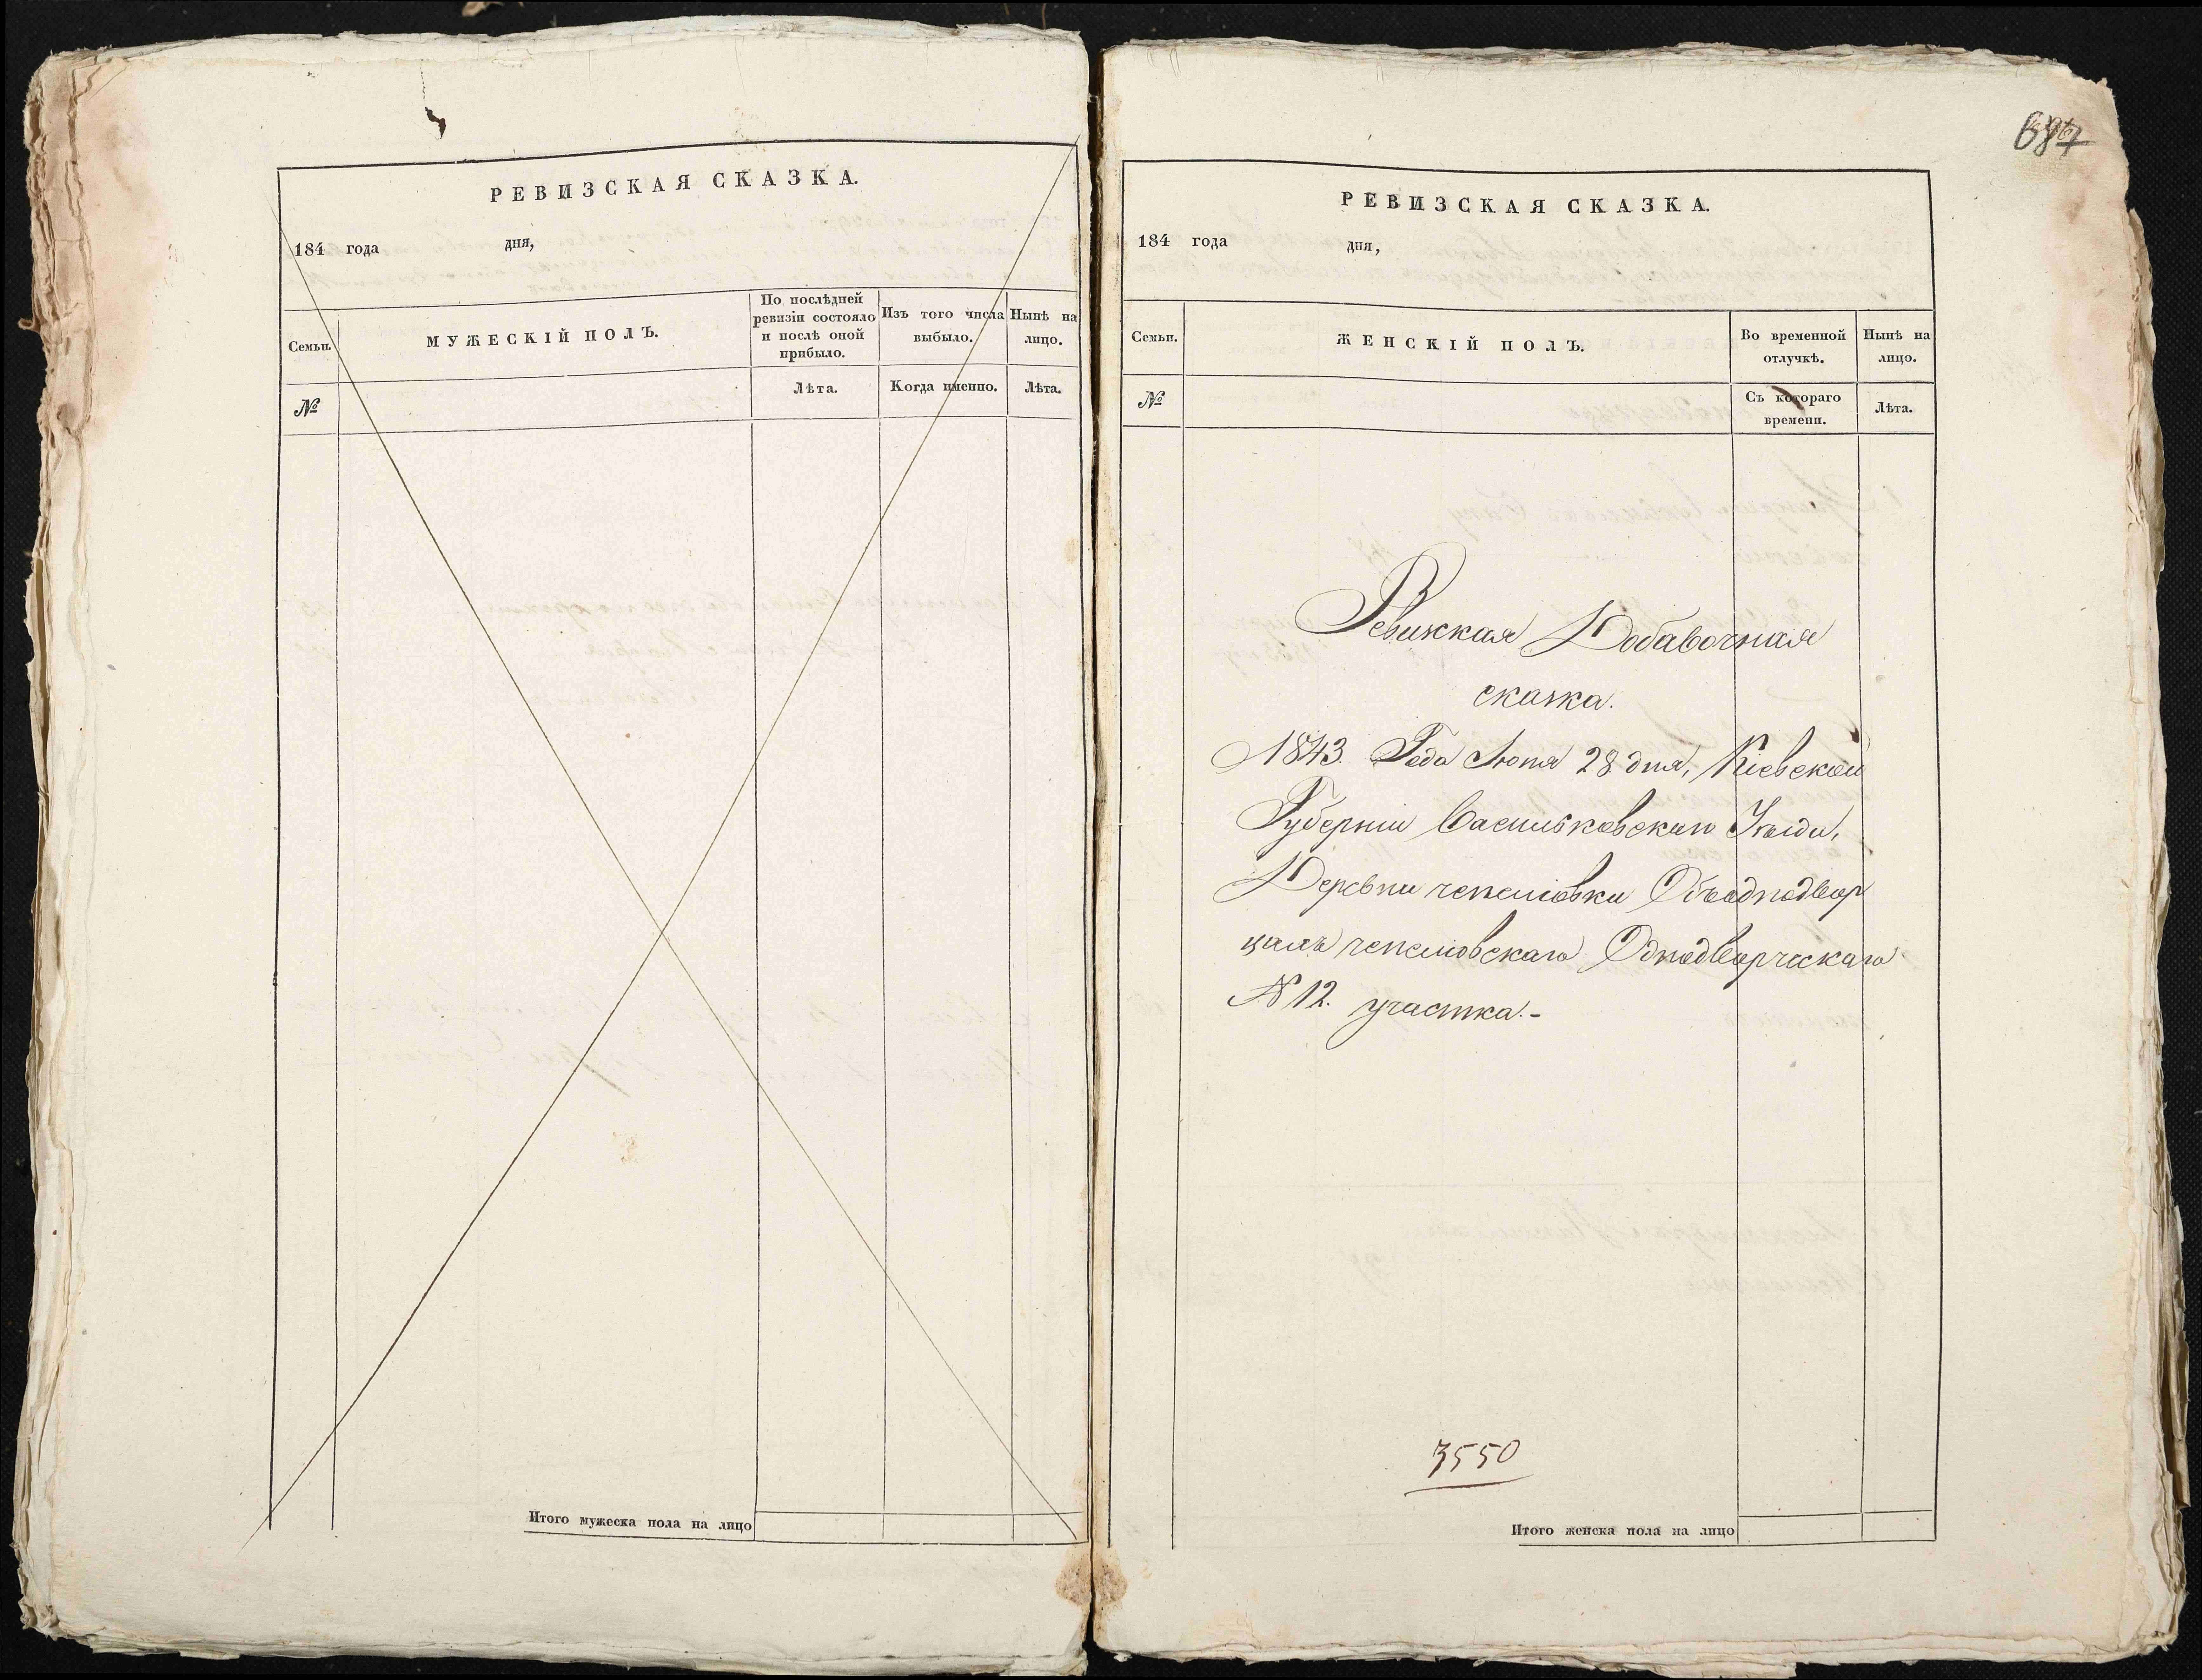 РЕВИЗСКАЯ СКАЗКА.
184 года дня,
Семьи.
МУЖЕСКІЙ ПОЛЪ.
По послѣдней ревизіи состояло и послѣ оной прибыло.
Изъ того числа выбыло.
Нынѣ на лицо.
№
Лѣта.
Когда именно.
Лѣта.
Итого мужеска пола на лицо
РЕВИЗСКАЯ СКАЗКА.
184 года дня,
Семьи.
ЖЕНСКІЙ ПОЛЪ.
Во временной отлучкѣ.
Нынѣ на лицо.
№
Съ котораго времени.
Лѣта.
Ревизкая Добавочная
сказка.
1843. Года Іюня 28 дня, Кіевской
Губерніи Васильковскаго Уѣзда,
Деревни чепелювки Объоднодвор
цахъ чепелювскаго Однодворческаго
№ 12. участка.-
3550
Итого женска пола на лицо